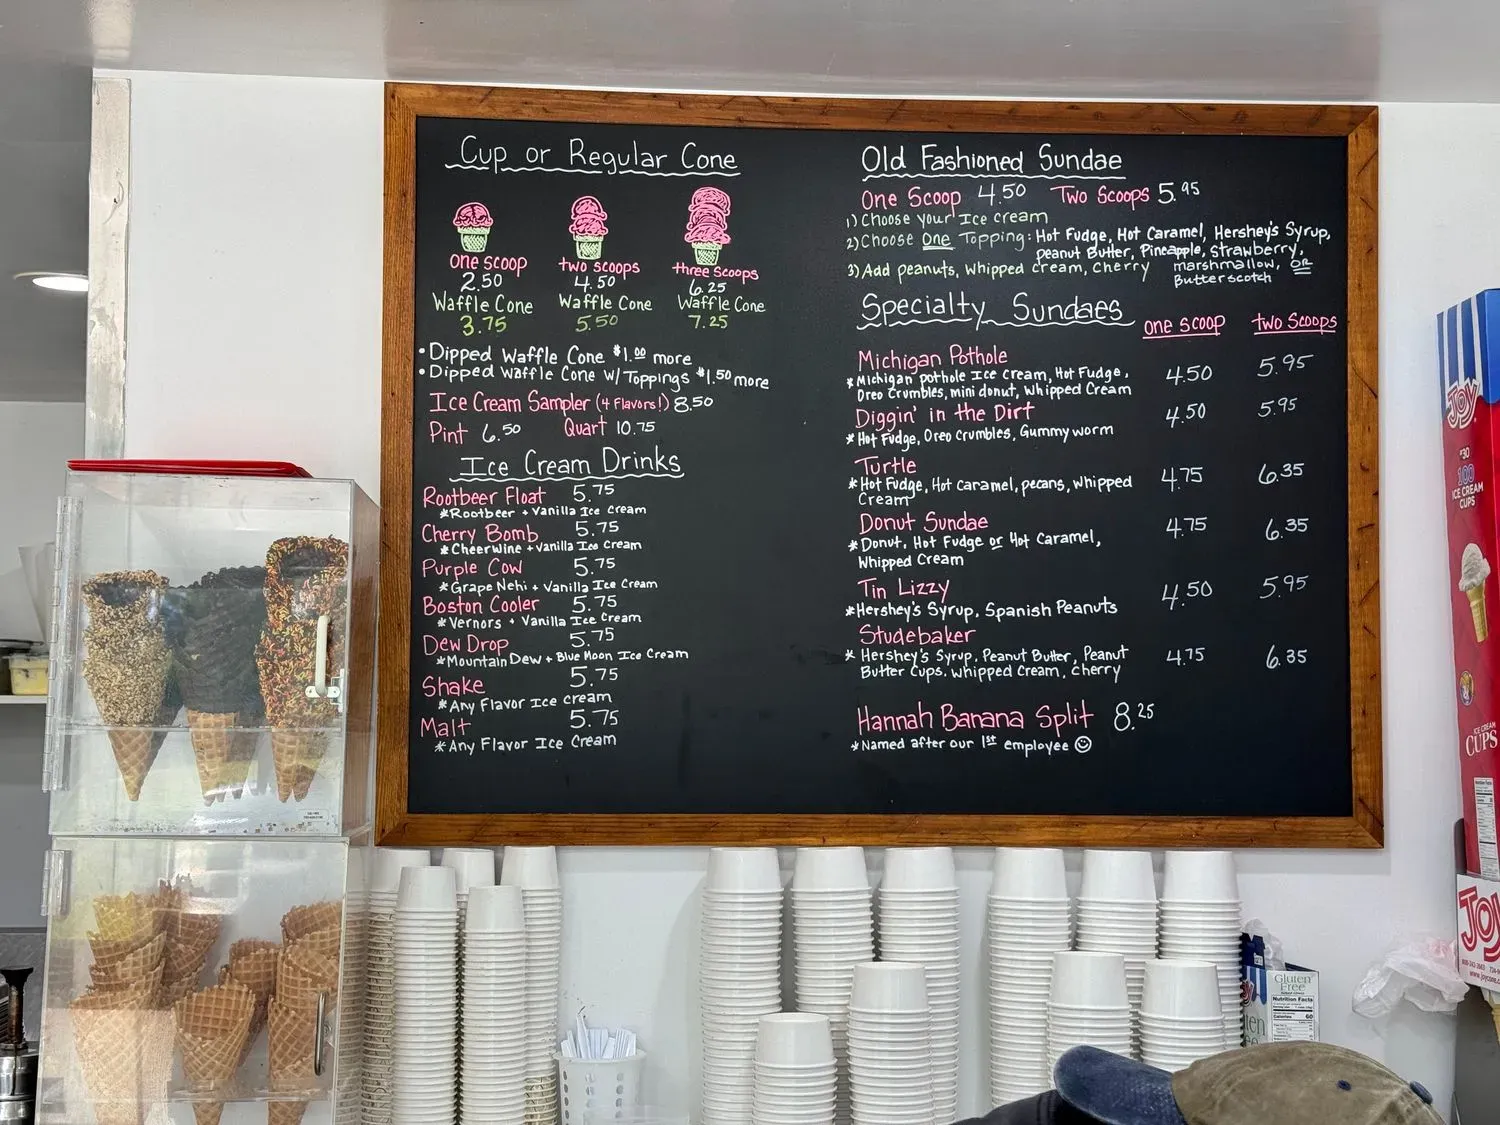 Cup or Regular Cone
one scoop
2.50
Waffle Cone
3.75
two scoops
4.50
Waffle Cone
5.50
three scoops
6.25
Waffle Cone
7.25
•Dipped Waffle Cone $1.00 more
•Dipped Waffle Cone w/Toppings $1.50 more
Ice Cream Sampler (4 Flavors!) 8.50
Pint 6.50 Quart 10.75
Ice Cream Drinks
Rootbeer Float 5.75
*Rootbeer + Vanilla Ice Cream
Cherry Bomb 5.75
*Cheerwine + Vanilla Ice Cream
Purple Cow 5.75
*Grape Nehi + Vanilla Ice Cream
Boston Cooler 5.75
*Vernors + Vanilla Ice Cream
Dew Drop 5.75
*Mountain Dew + Blue Moon Ice Cream
Shake 5.75
*Any Flavor Ice cream
Malt 5.75
*Any Flavor Ice Cream
Old Fashioned Sundae
One Scoop 4.50 Two Scoops 5.95
1) Choose your Ice cream
2) Choose One Topping: Hot Fudge, Hot Caramel, Hershey's Syrup,
peanut Butter, Pineapple, strawberry,
marshmallow, OR
Butterscotch
3) Add peanuts, whipped cream, cherry
Specialty Sundaes
one scoop two Scoops
Michigan Pothole 4.50 5.95
*Michigan pothole Ice cream, Hot Fudge,
Oreo Crumbles, mini donut, Whipped Cream
Diggin' in the Dirt 4.50 5.95
*Hot Fudge, Oreo Crumbles, Gummy worm
Turtle 4.75 6.35
*Hot Fudge, Hot Caramel, pecans, Whipped
Cream
Donut Sundae 4.75 6.35
*Donut, Hot Fudge or Hot Caramel,
Whipped Cream
Tin Lizzy 4.50 5.95
*Hershey's Syrup, Spanish Peanuts
Studebaker 4.75 6.35
*Hershey's Syrup, Peanut Butter, Peanut
Butter Cups, whipped cream, cherry
Hannah Banana Split 8.25
*Named after our 1st employee
JOY
#30
100
ICE CREAM
CUPS
ICE CREAM
CUPS
JOY
Gluten
Free
Nutrition Facts
Calories 60